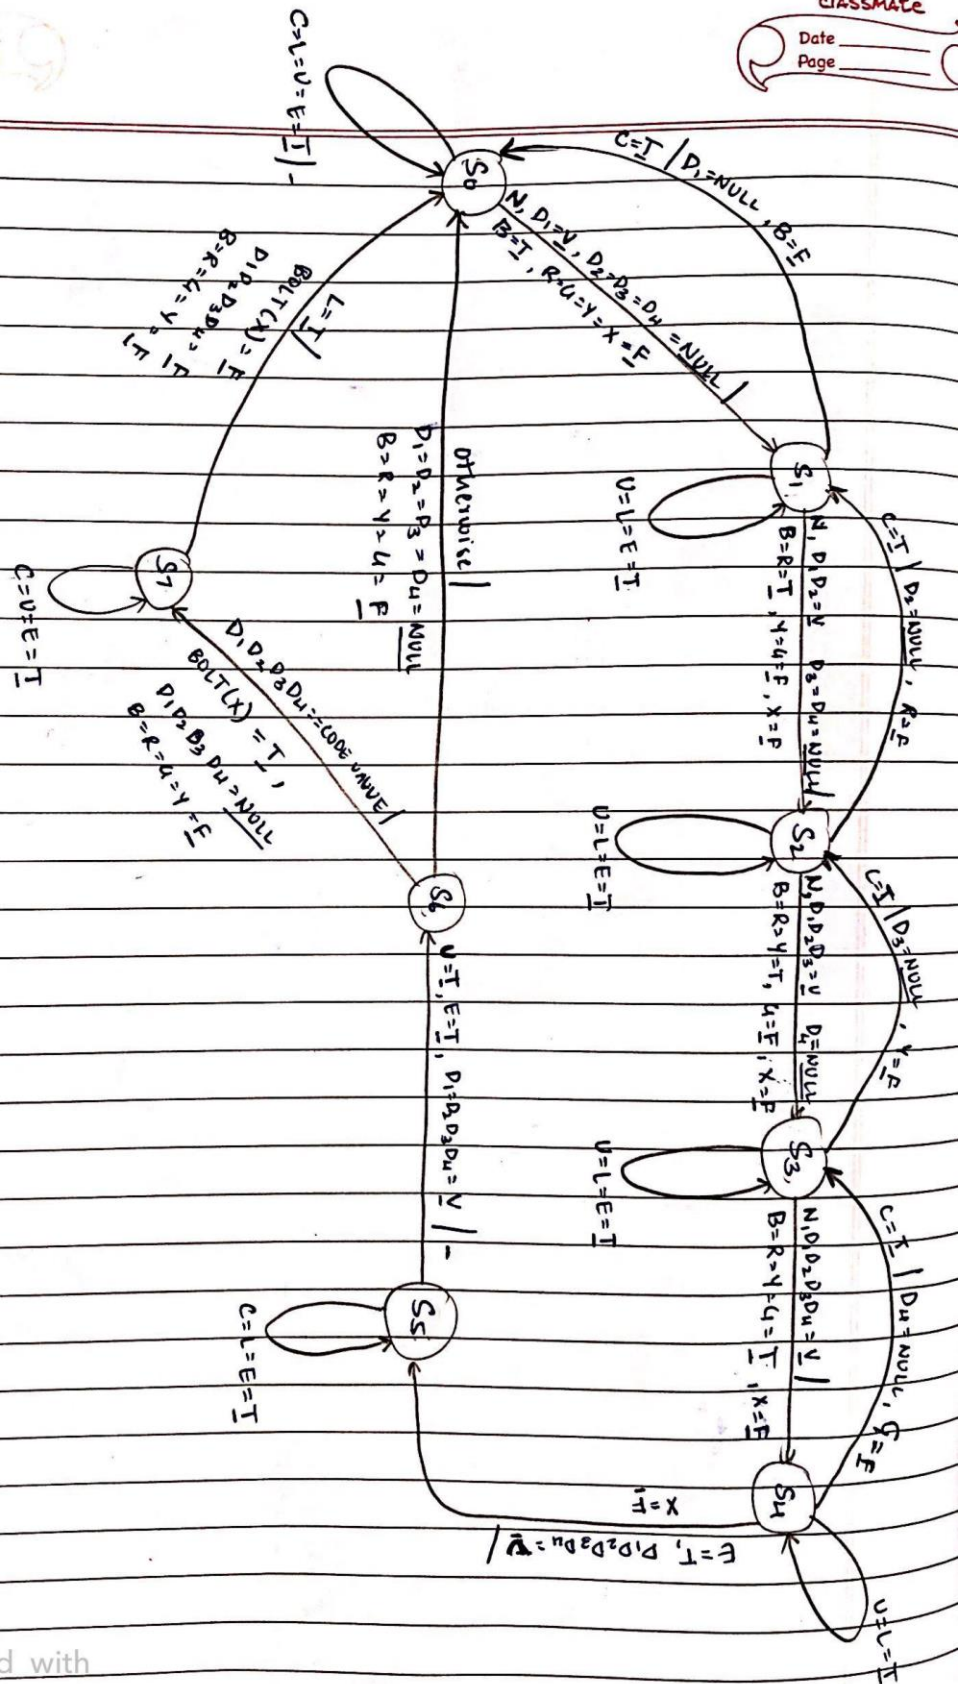 CLASSMATE
Date
Page
C=L=U=E=T/-
S0
C=T / D1=NULL, B=F
N, D1=V, D2=D3=D4=NULL/
B=T, R=G=Y=X=F
S1
U=L=E=T
C=T / D2=NULL, R=F
N, D1D2=V D3=D4=NULL/
B=R=T, Y=G=F, X=F
S2
U=L=E=T
C=T / D3=NULL, Y=F
N, D1D2D3=V D4=NULL
B=R=Y=T, G=F, X=F
S3
U=L=E=T
C=T / D4=NULL, G=F
N, D1D2D3D4=V/
B=R=Y=G=T, X=F
S4
U=L=T
E=T, D1D2D3D4=V/
X=F
S5
C=L=E=T
U=T, E=T, D1=D2D3D4=V/-
S6
otherwise/
D1=D2=D3=D4=NULL
B=R=Y=G=F
D1D2D3D4==CODE VALUE/
BOLT(X)=T,
D1D2D3D4=NULL
B=R=G=Y=F
S7
C=U=E=T
L=T/
BOLT(X)=F
D1D2D3D4=F
B=R=G=Y=F
d with